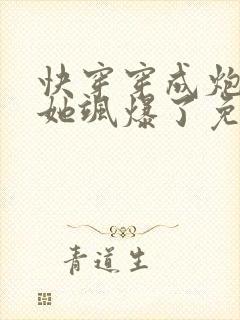 快穿穿成炮
她飒爆了免
青道生